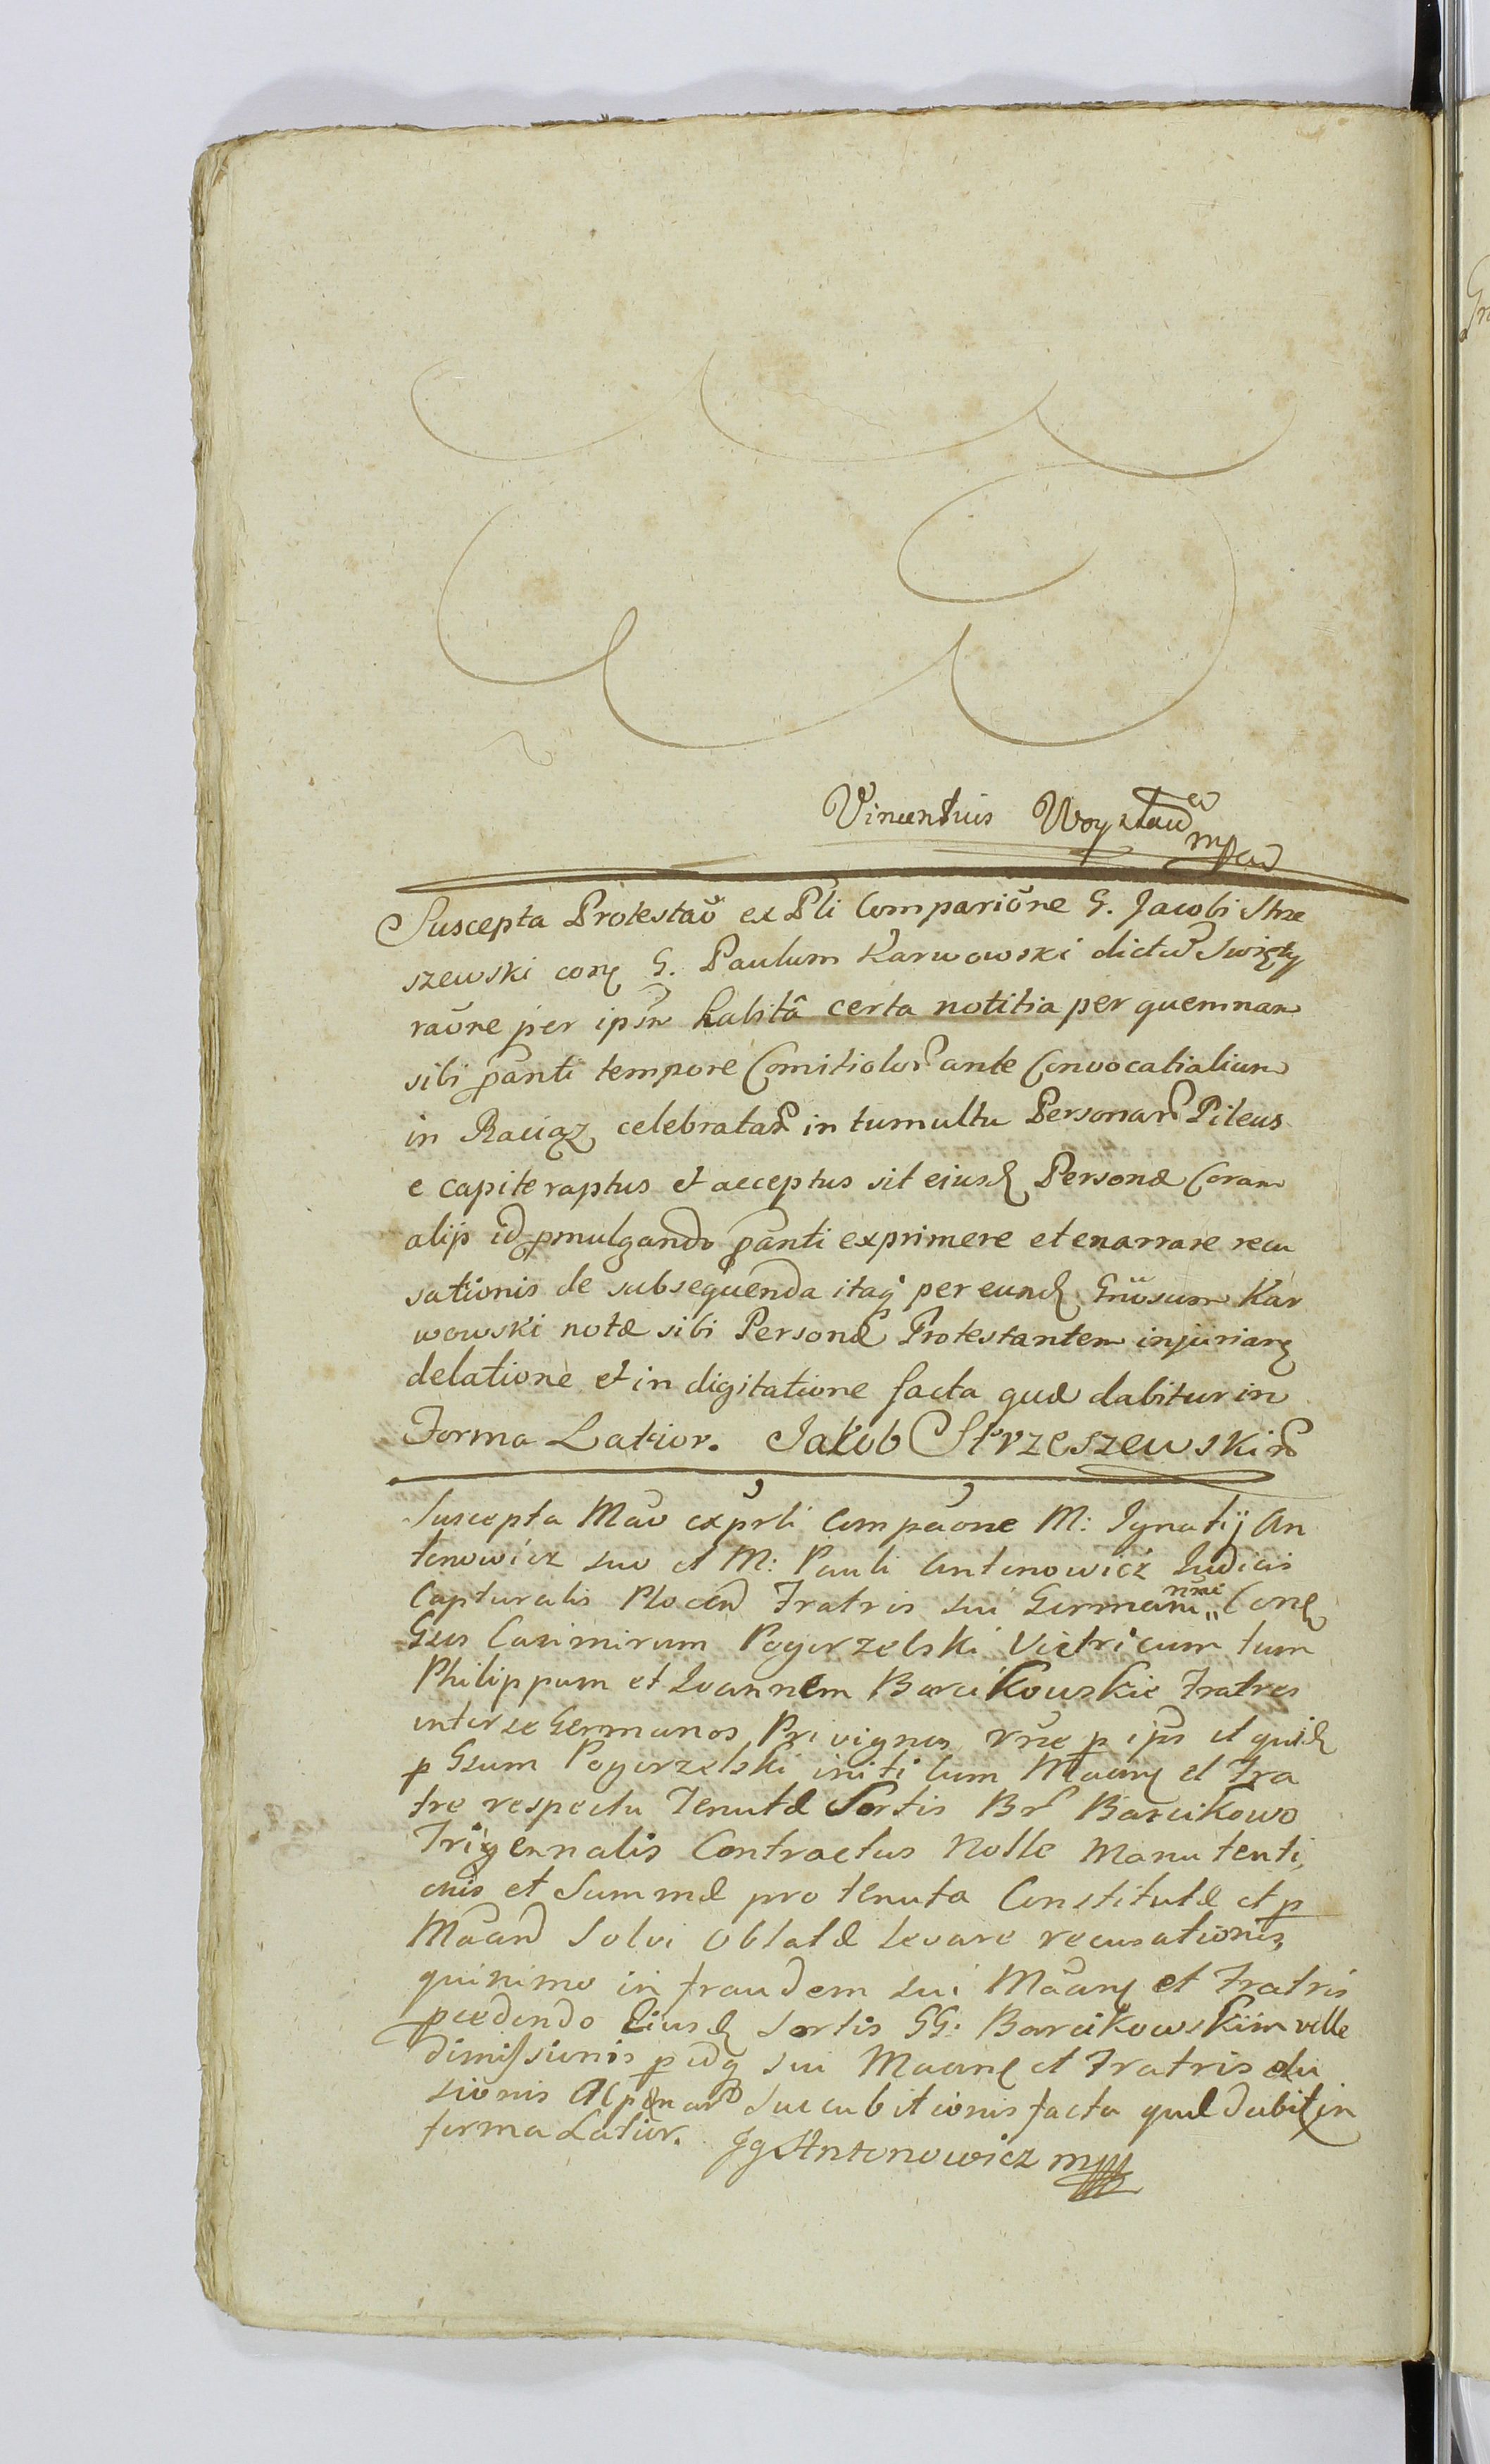 Vincentius Woysław
mp
Suscepta Protestaõ ex Pli Compariõne G. Jacobi Strze
szewski con G. Paulum Karwowski dictũ Swięty
raõne per ipsũ habitâ certa notitia per quemnam
sibi pãnti tempore Comitiolor ante Convocatialium
in Raciąz celebratar in tumultu Personar Pileus
e capite raptus et acceptus sit eiusd Personæ Coram
alijs id pmulgando pãnti exprimere et enarrare recu
sationis de subsequenda itaq per eund Gnõsum Kar
wowski notæ sibi Personæ Protestantem injuriar
delatione et in digitatione facta quæ dabitur in
Forma Latior. Jakob Strzeszewski mp
Suscepta Mão ex prli Compãone M: Ignatij An
tonowicz suo et M: Pauli Antonowicz Judicis
Capturalis Plocen Fratris sui Germani nrãe Con
Gsus Casimirum Pogorzelski Vietricum tum
Philippum et Joannem Barcikowskie Fratres
inter se Germanos Privignos rñe p ips et quid
p Gsum Pogorzelski initi Cum Mãan et Fra
tre respectu Tenutæ Sortis Br Barcikowo
Trigennalis Contractus Nolle Manutenti,
onis et Summæ pro tenuta Constitutæ et p
Mãan Solvi Oblatæ Levare recusationis,
quinimo in fraudem sui Mãan et Fratris
pcedendo Eiusd Sortis GG: Barcikowskiim velle
dimissionis p idq sui Maan et Fratris elu
sionis Acpænar Succubitionis facta quæ dabit in
forma Latior. Jg Antonowicz mp